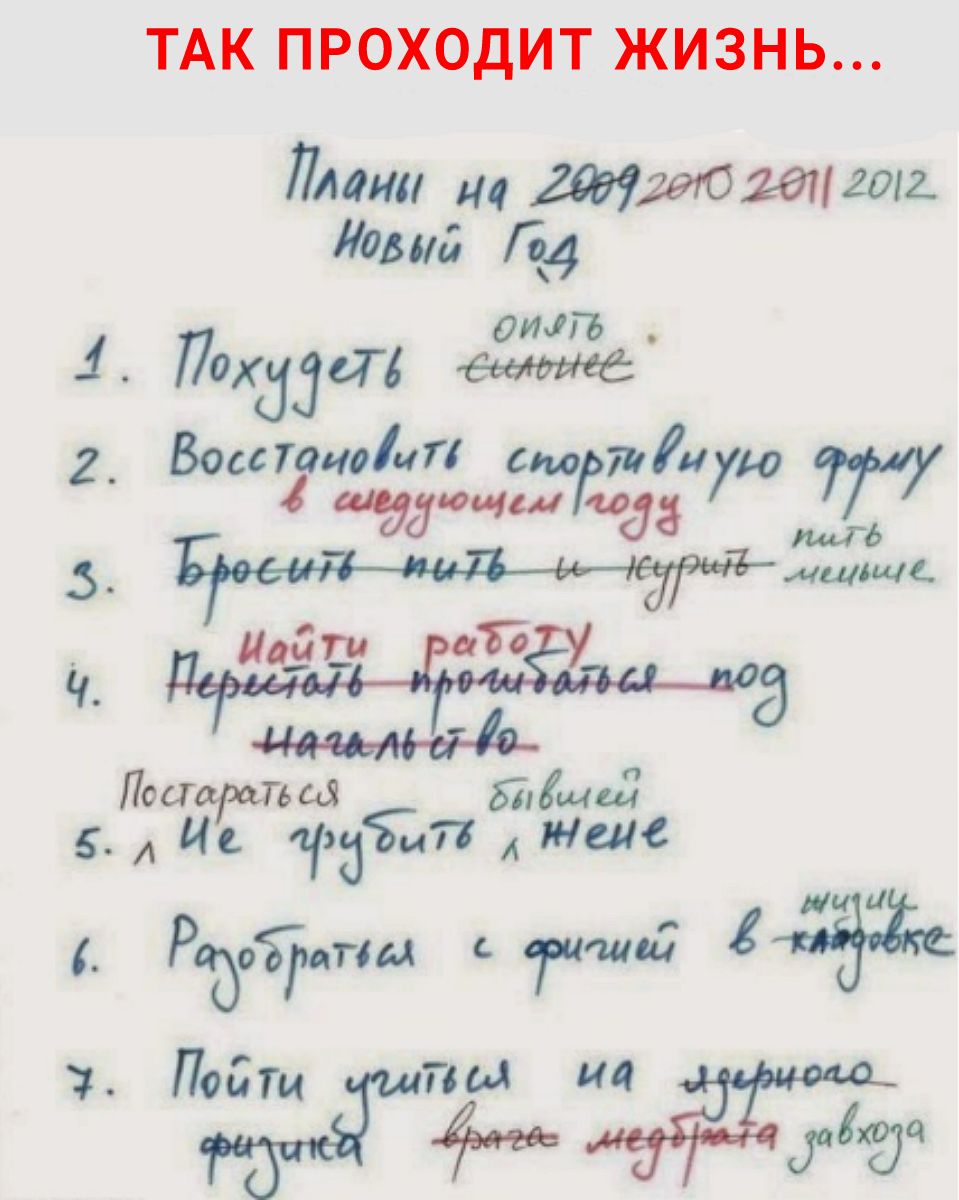 ТАК ПРОХОДИТ ЖИЗНЬ...
Планы на 2009 2010 2011 2012
Новый Год
опять
1. Похудеть сильнее
2. Восстановить спортивную форму
в следующем году
пить
3. Бросить пить и курить меньше
Найти работу
4. Перестать прогибаться под
начальство
Постараться бывшей
5. Не грубить жене
жизни
6. Разобраться с фигней в кладовке
7. Пойти учиться на ядерного
физика врача медбрата завхоза